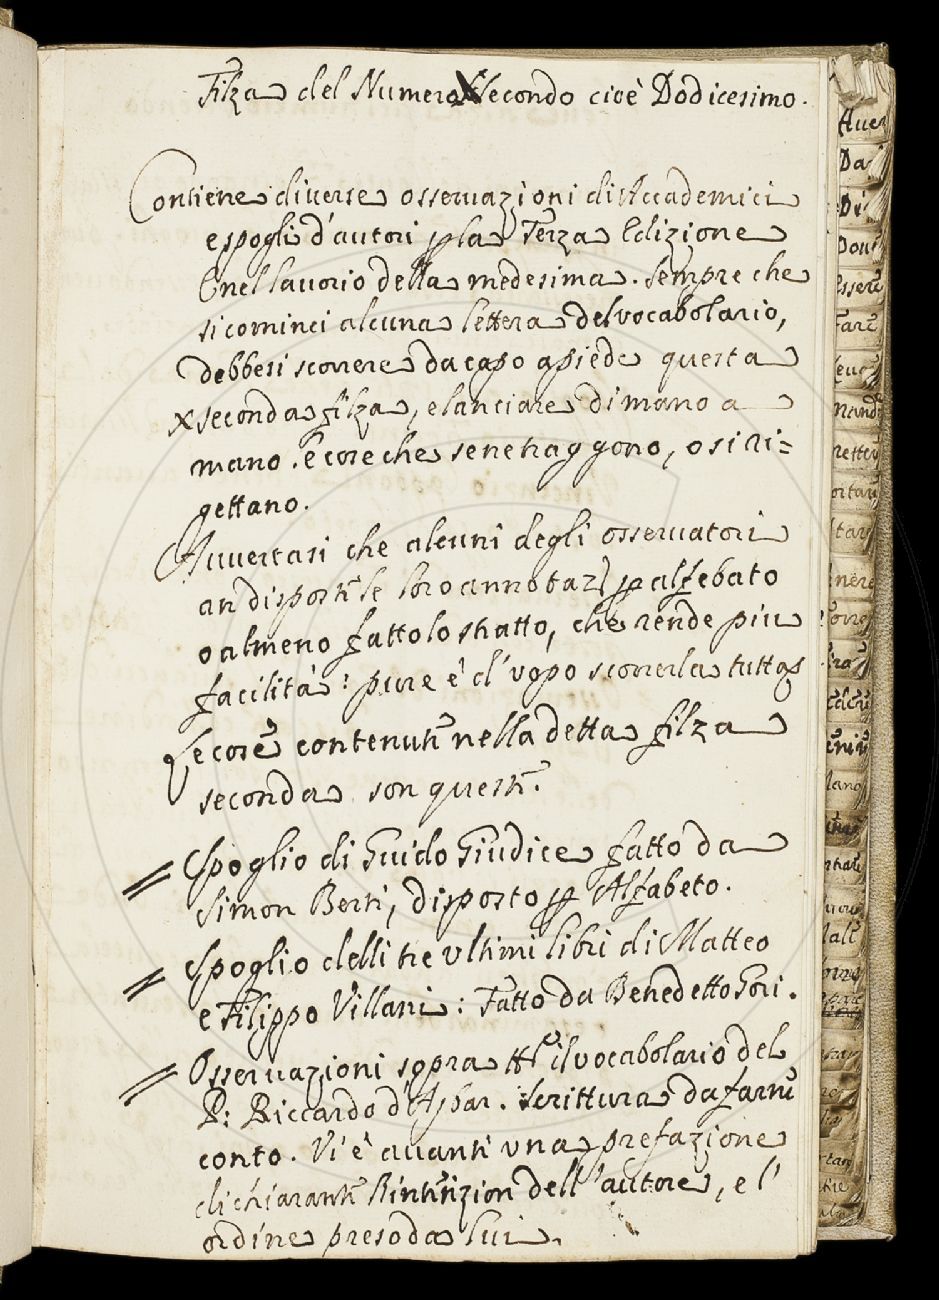 Filza del Numero X secondo cioè Dodicesimo.
Contiene diverse osservazioni di Accademici
e spogli d'autori p la Terza Edizione
E nel lavorio della medesima. Sempre che
si cominci alcuna lettera del vocabolario,
debbesi scorrere da capo a piede questa
X seconda filza, e lanciare di mano a
mano. le cose che se ne traggono, o si ri=
gettano.
Avvertasi che alcuni degli osservatori
an disposti le loro annotazi p alfebato
o almeno fattolo stratto, che rende piu
facilità: pure è d'uopo scorrerla tutta
Le cose contenuti nella detta filza
seconda son questi.
Spoglio di Guido Giudice fatto da
Simon Berti, disposto p Alfabeto.
Spoglio delli tre ultimi libri di Matteo
e Filippo Villani: Fatto da Benedetto Gori.
Osservazioni sopra tt il vocabolario del
P: Riccardo d'Aspar. scrittura da farne
conto. Vi è avanti una prefazione
dichiaranti l'intenzion dell'autore, e l'
ordine preso da lui.
Aver
Da
Di
Essere
Fare